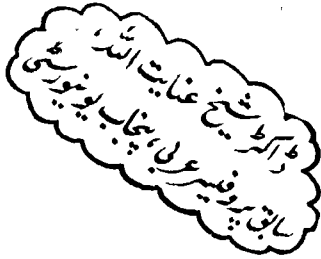 ڈاکٹر شیخ عنایت اللہ،
سابق پروفیسر عربی، پنجاب یونیورسٹی